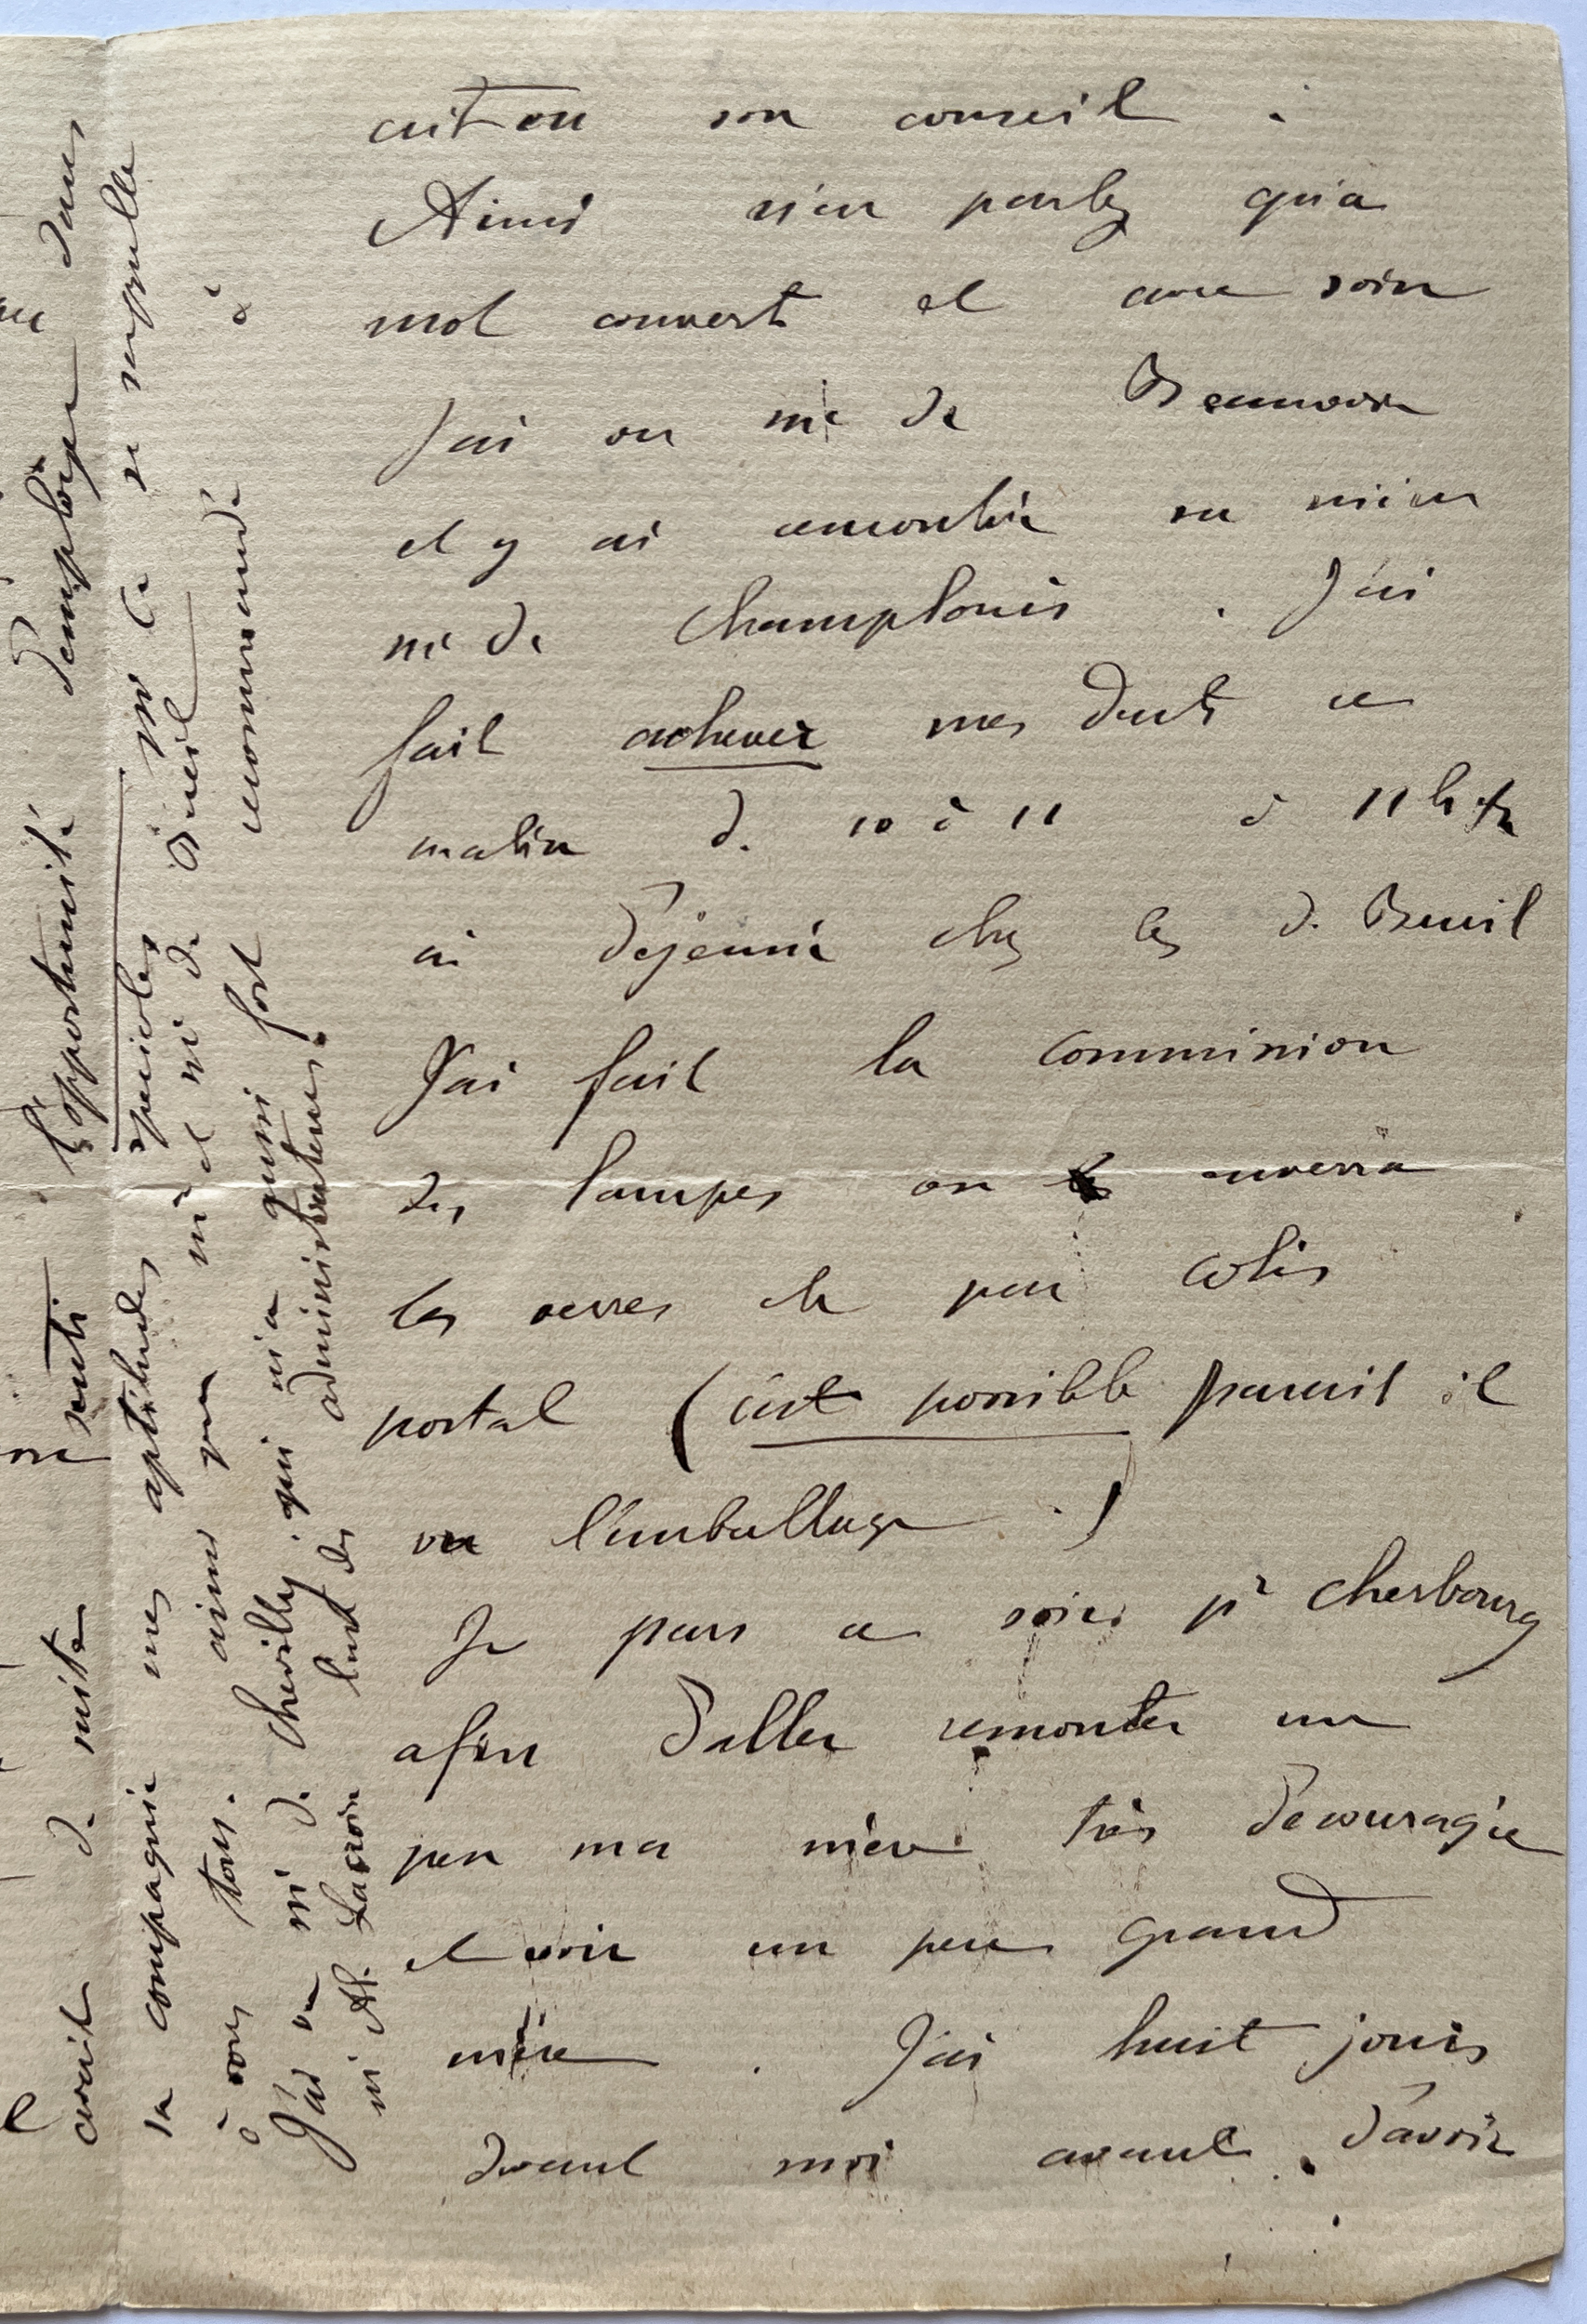 cit on son conseil.
Ainsi n'en parlez qu'à
mot couvert et avec soin
J'ai vu mr de Beauvoir
et y ai rencontré
mr de Champlouis. J'ai
fait achever mes dents ce
matin d. 10 à 11 à 11 h ½
ai déjeuné chez les d. Breuil
J'ai fait la commission
des lampes on enverra
les verres ch par colis
postal (c'est possible parait il
vu l'emballage.)
Je pars ce soir pr Cherbourg
afin d'aller remonter un
peu ma mère très découragée
et voir un peu grand
mère. J'ai huit jours
devant moi avant d'avoir
avait de suite senti l'opportunité d'employer dans
sa compagnie mes aptitudes speciales pr ce se rappelle
à vous tous. ainsi que me et mr de Breuil
J'ai vu mr d. Chevilly. qui m'a fort recommandé à
mr Al. Lacroix l'un des administrateurs.